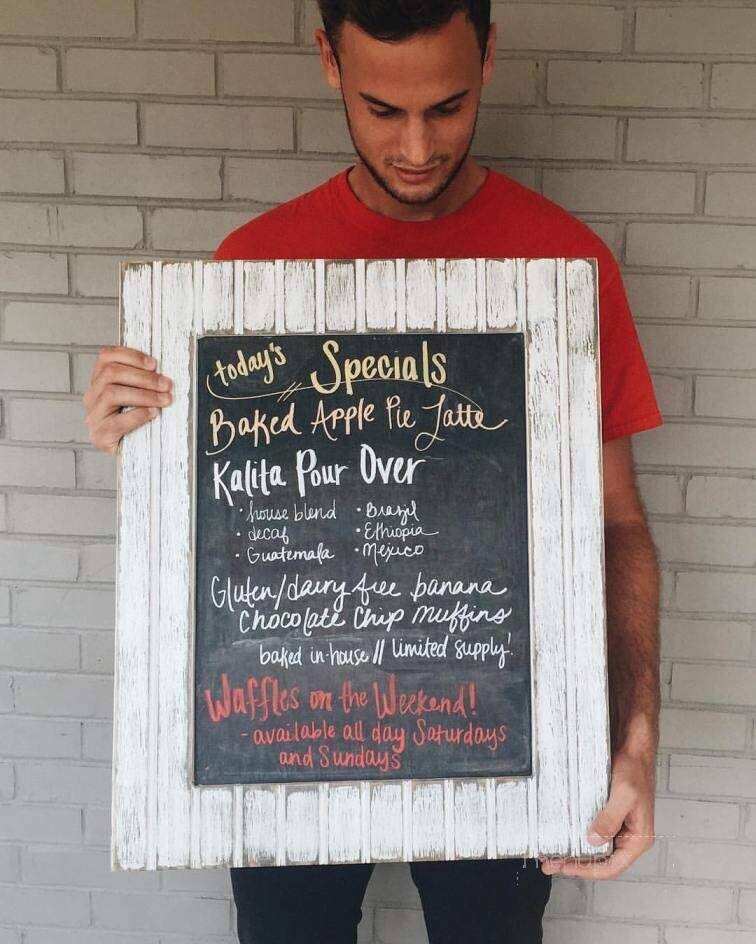 today's Specials
Baked Apple Pie Latte
Kalita Pour Over
• house blend • Brazil
• decaf • Ethiopia
• Guatemala • Mexico
Gluten/dairy free banana
Chocolate Chip Muffins
baked in-house // limited supply!
Waffles on the Weekend!
- available all day Saturdays
and Sundays